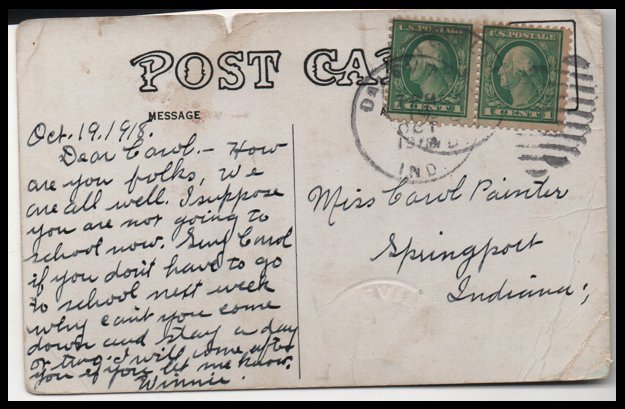 POST CA
U.S. POSTAGE
U.S. POSTAGE
1 CENTS 1
1 CENTS 1
OCT
IND.
MESSAGE
Oct. 19, 1918.
Dear Carol. - How
are you folks, We
are all well. I suppose
you are not going to
school now. Say Carol
if you don't have to go
to school next week
why can't you come
down and stay a day
or two. I will come after
you if you let me know.
Winnie.
Miss Carol Painter
Springport
Indiana;